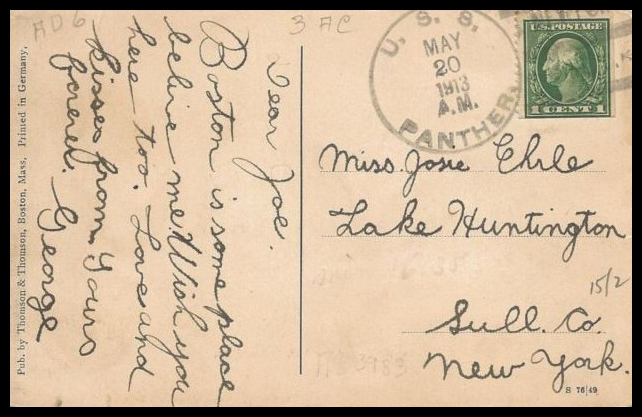 AD6
3 AC
U. S. S.
MAY
20
1913
A.M.
PANTHER
U.S. POSTAGE
1 CENT 1
Dear Joe.
Boston is some place
belive me. Wish you
here too. Love and
kisses from Yours
forever. George
Miss. Josie Ehrle
Lake Huntington
15/2
Sull. Co.
New York.
S 76|49
Pub. by Thomson & Thomson, Boston, Mass. Printed in Germany.